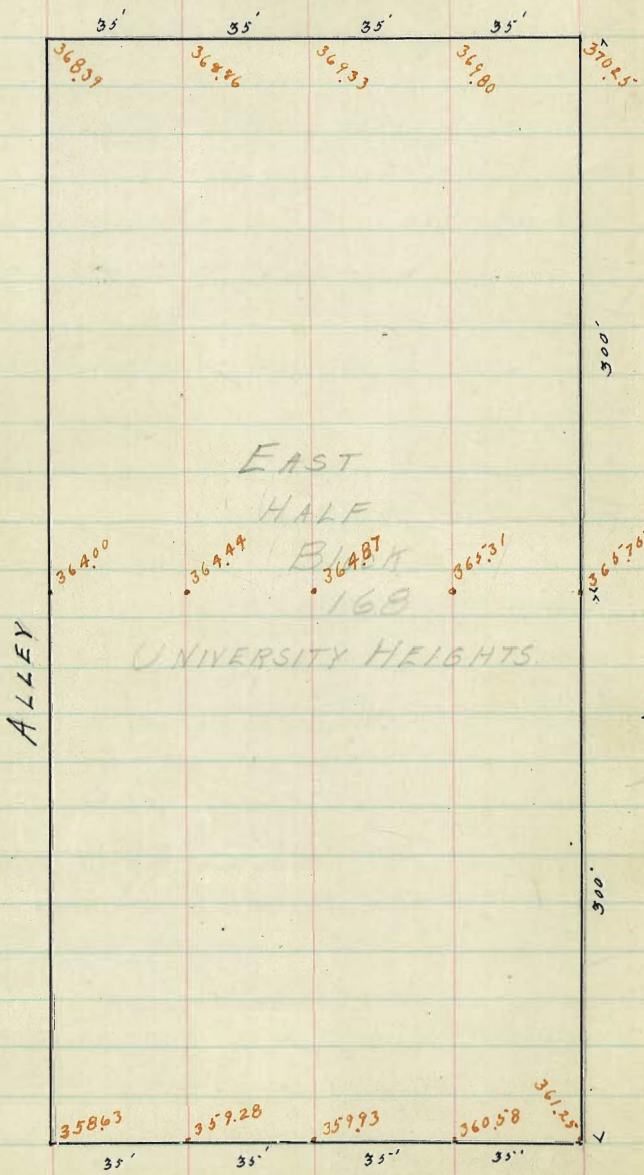 35' 35' 35' 35'
368.39 368.86 369.33 369.80 370.25
300'
EAST
HALF
BLOCK
168
UNIVERSITY HEIGHTS.
364.00 364.44 364.87 365.31 365.75
ALLEY
300'
358.63 359.28 359.93 360.58 361.25
35' 35' 35' 35'